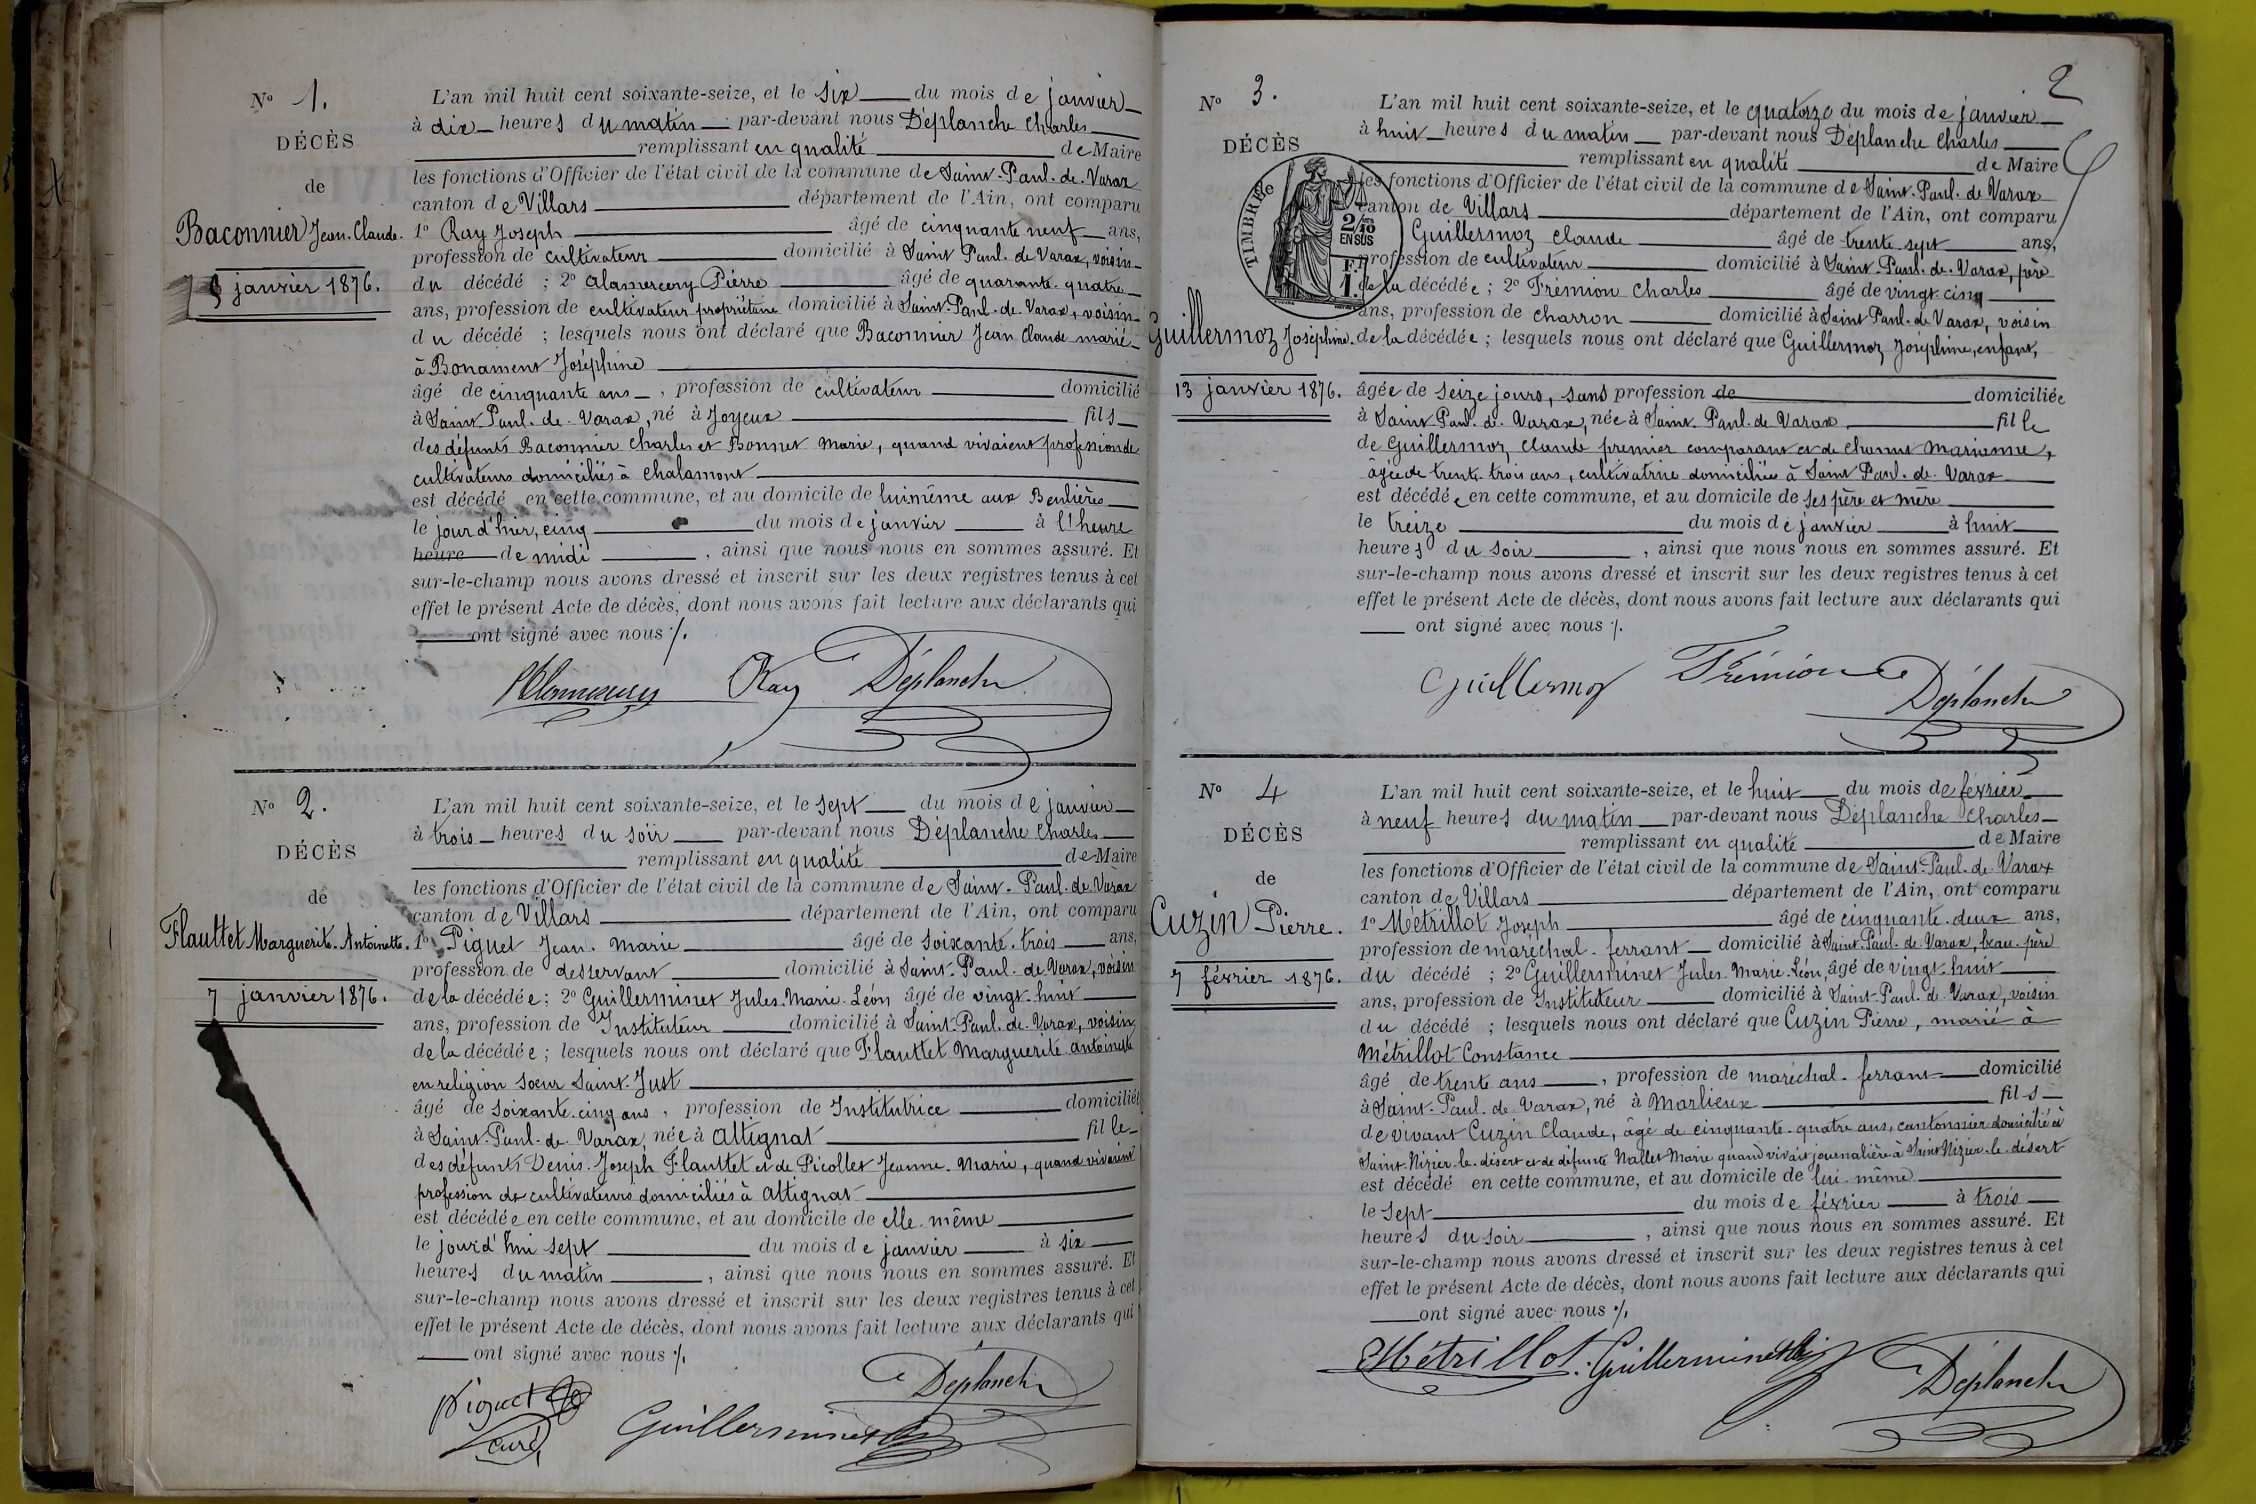 N° 1.
DÉCÈS
de
Baconnier Jean-Claude.
5 janvier 1876.
L'an mil huit cent soixante-seize, et le six du mois de janvier
à dix heures du matin par-devant nous Déplanche Charles
remplissant en qualité de Maire
les fonctions d'Officier de l'état civil de la commune de Saint-Paul-de-Varax
canton de Villars département de l'Ain, ont comparu
1° Ray Joseph âgé de cinquante neuf ans,
profession de cultivateur domicilié à Saint Paul-de Varax, voisin
du décédé ; 2° Alamercery Pierre âgé de quarante-quatre
ans, profession de cultivateur propriétaire domicilié à Saint-Paul-de-Varax, voisin
du décédé ; lesquels nous ont déclaré que Baconnier Jean Claude marié
à Bonament Joséphine
âgé de cinquante ans , profession de cultivateur domicilié
à Saint Paul-de-Varax, né à Joyeux fils
des défunts Baconnier Charles et Bonnet Marie, quand vivaient profession de
cultivateurs domiciliés à Chalamont
est décédé en cette commune, et au domicile de lui même aux Beulières
le jour d'hier, cinq du mois de janvier à l'heure
heure de midi , ainsi que nous nous en sommes assuré. Et
sur-le-champ nous avons dressé et inscrit sur les deux registres tenus à cet
effet le présent Acte de décès, dont nous avons fait lecture aux déclarants qui
ont signé avec nous ./.
Ray Déplanche
N° 2.
DÉCÈS
de
Flauttet Marguerite-Antoinette.
7 janvier 1876.
L'an mil huit cent soixante-seize, et le sept du mois de janvier
à trois heures du soir par-devant nous Déplanche Charles
remplissant en qualité de Maire
les fonctions d'Officier de l'état civil de la commune de Saint-Paul-de-Varax
canton de Villars département de l'Ain, ont comparu
1° Piguet Jean-Marie âgé de soixante-trois ans,
profession de desservant domicilié à Saint-Paul-de Varax, voisin
de la décédée ; 2° Guillerminet Jules-Marie-Léon âgé de vingt-huit
ans, profession de Instituteur domicilié à Saint-Paul-de-Varax, voisin
de la décédée ; lesquels nous ont déclaré que Flauttet Marguerite Antoinette
en religion sœur Saint-Just
âgé de soixante-cinq ans , profession de Institutrice domiciliée
à Saint-Paul-de-Varax, née à Attignat fille
des défunts Denis-Joseph Flauttet et de Picollet Jeanne-Marie, quand vivaient
profession de cultivateurs domiciliés à Attignat
est décédée en cette commune, et au domicile de elle-même
le jour d'hui sept du mois de janvier à six
heures du matin , ainsi que nous nous en sommes assuré. Et
sur-le-champ nous avons dressé et inscrit sur les deux registres tenus à cet
effet le présent Acte de décès, dont nous avons fait lecture aux déclarants qui
ont signé avec nous ./.
Piguet
curé
Guillerminet
Déplanche
2
N° 3.
DÉCÈS
TIMBRES
2/10
EN SUS
F.
1.
Guillermoz Joséphine.
13 janvier 1876.
L'an mil huit cent soixante-seize, et le quatorze du mois de janvier
à huit heures du matin par-devant nous Déplanche Charles
remplissant en qualité de Maire
les fonctions d'Officier de l'état civil de la commune de Saint-Paul-de Varax
canton de Villars département de l'Ain, ont comparu
Guillermoz Claude âgé de trente-sept ans,
profession de cultivateur domicilié à Saint-Paul-de-Varax, père
de la décédée ; 2° Trémion Charles âgé de vingt cinq
ans, profession de charron domicilié à Saint Paul-de Varax, voisin
de la décédée ; lesquels nous ont déclaré que Guillermoz Joséphine, enfant,
âgée de seize jours, sans profession de domiciliée
à Saint-Paul-de-Varax, née à Saint Paul-de Varax fille
de Guillermoz, Claude premier comparant et de Charnut Marianne,
âgée de trente-trois ans, cultivatrice domiciliée à Saint Paul-de-Varax
est décédée en cette commune, et au domicile de ses père et mère
le treize du mois de janvier à huit
heures du soir , ainsi que nous nous en sommes assuré. Et
sur-le-champ nous avons dressé et inscrit sur les deux registres tenus à cet
effet le présent Acte de décès, dont nous avons fait lecture aux déclarants qui
ont signé avec nous ./.
Guillermoz Trémion Déplanche
N° 4
DÉCÈS
de
Cuzin Pierre.
7 février 1876.
L'an mil huit cent soixante-seize, et le huit du mois de février
à neuf heures du matin par-devant nous Déplanche Charles
remplissant en qualité de Maire
les fonctions d'Officier de l'état civil de la commune de Saint-Paul-de-Varax
canton de Villars département de l'Ain, ont comparu
1° Métrillot Joseph âgé de cinquante-deux ans,
profession de maréchal-ferrant domicilié à Saint-Paul-de Varax, beau-père
du décédé ; 2° Guillerminet Jules-Marie-Léon, âgé de vingt-huit
ans, profession de Instituteur domicilié à Saint-Paul-de-Varax, voisin
du décédé ; lesquels nous ont déclaré que Cuzin Pierre, marié à
Métrillot Constance
âgé de trente ans , profession de maréchal-ferrant domicilié
à Saint-Paul-de Varax, né à Marlieux fils
de vivant Cuzin Claude, âgé de cinquante-quatre ans, cantonnier domicilié à
Saint-Nizier-le-désert et de défunte Nallet Marie quand vivait journalière à Saint Nizier-le-désert
est décédé en cette commune, et au domicile de lui-même
le sept du mois de février à trois
heures du soir , ainsi que nous nous en sommes assuré. Et
sur-le-champ nous avons dressé et inscrit sur les deux registres tenus à cet
effet le présent Acte de décès, dont nous avons fait lecture aux déclarants qui
ont signé avec nous ./.
Métrillot. Guillerminet Déplanche